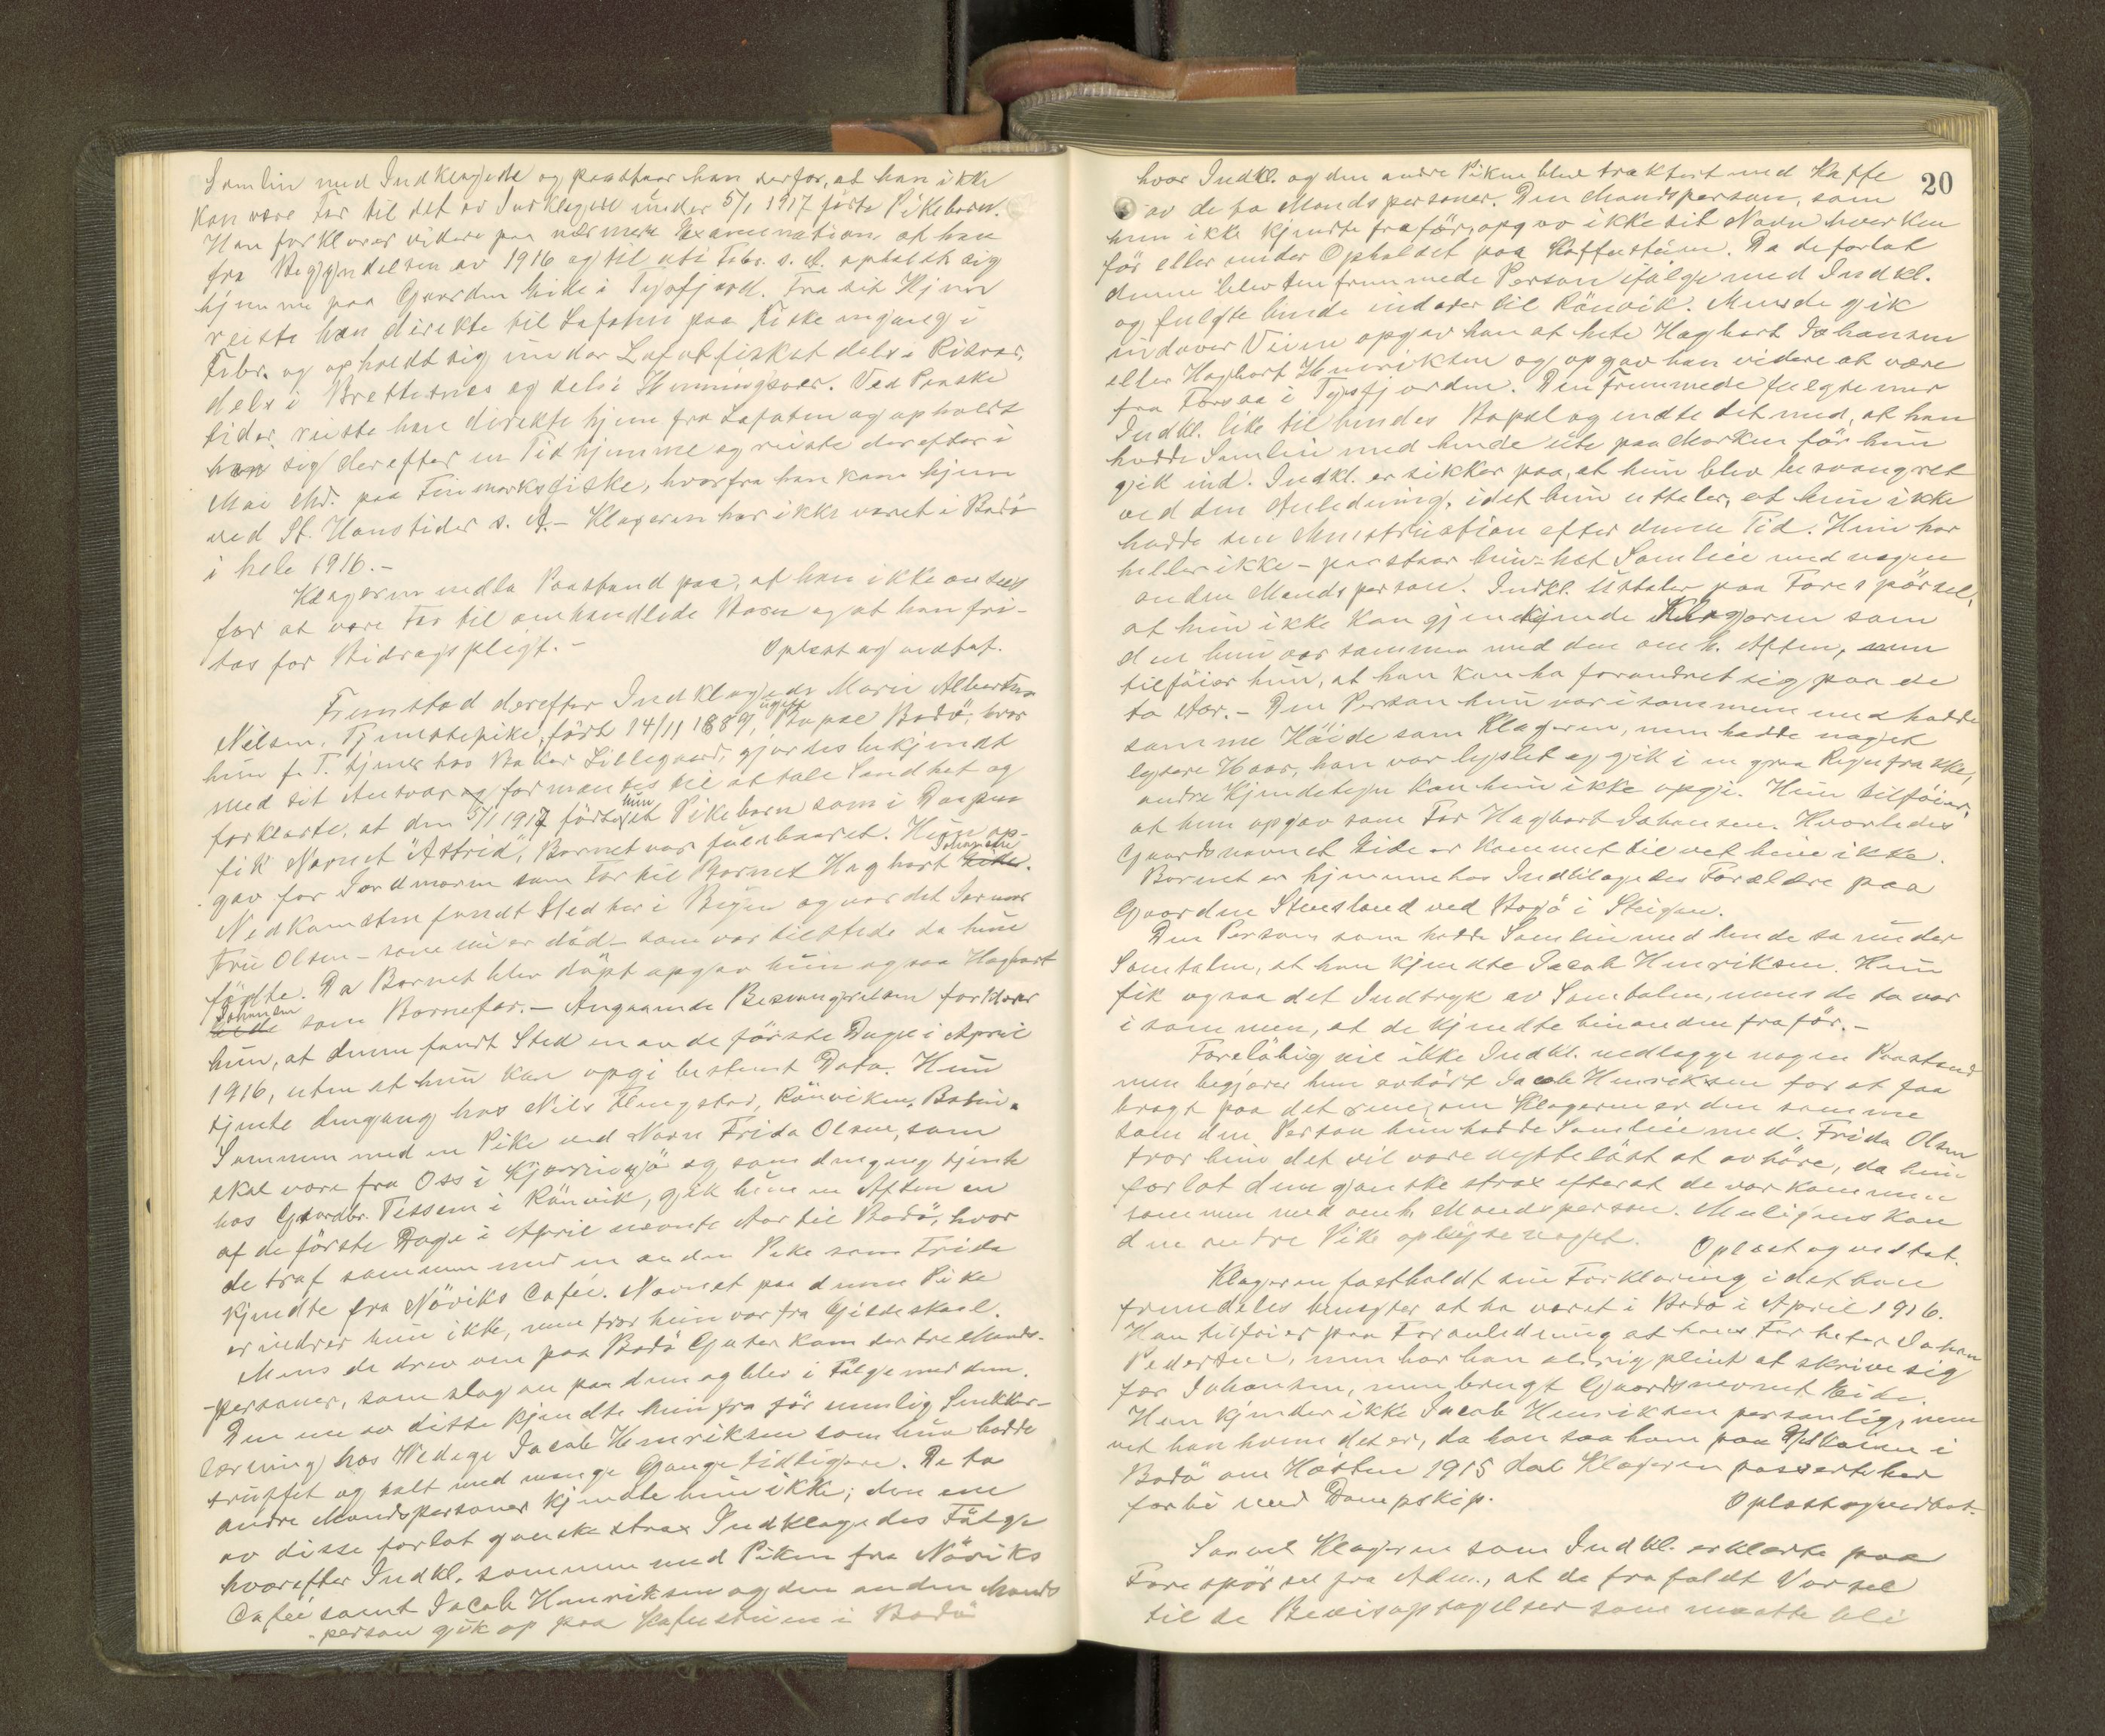 Samlein med Indklagede og paastaar han derfor, at han ikke
kan være Far til det av Indklagede under 5/1 1917 førte Pikebarn.
Han forklarer videre paa nærmere Examination at han
fra Begyndelsen av 1916 og til uti Febr. s. A. opholdt sig
hjemme paa Gaarden Eide i Tysfjord. Fra sit Hjem
reiste han direkte til Lofoten paa Fiske engang i
Febr. og opholdt sig under Lofotfisket dels i Risvær,
dels i Brettesnes og dels i Henningsvær. Ved Paaske
tider reiste han direkte hjem fra Lofoten og opholdt
han sig derefter en Tid hjemme og reiste derefter i
Mai Md. paa Finmarksfiske, hvorfra han kom hjem
ved St. Hanstider s. A. - Klageren har ikke været i Bodö
i hele 1916. -
Klageren nedla Paastand paa, at han ikke ansees
for at være Far til omhandlede Barn og at han fri-
tas for Bidragspligt. -
Oplæst og vedtat.
Fremstod derefter Indklagede Marie Albertine
Nilsen, Tjenestepike, född 14/11 1889, ugift, Bopæl Bodö, hvor
hun f. T. tjener hos Baker Lillegaard, gjordes bekjendt
med sit Ansvar og formantes til at tale Sandhet og
forklarte, at den 5/1 1917 födte hun et Pikebarn som i Daapen
fik Navnet "Astrid", Barnet var fuldbaaret. Hun op-
gav for Jordmoren som Far til Barnet Hagbart Johansen
Nedkomsten fandt Sted her i Byen og var det Jormor
Fru Olsen - som nu er död - som var tilstede da hun
födte. Da Barnet blev döpt opgav hun ogsaa Hagbart
Johansen som Barnefar. - Angaaende Besvangrelsen forklarer
hun, at denne fandt Sted en av de første Dage i April
1916, uten at hun kan opgi bestemt Dato. Hun
tjente dengang hos Nils Flengstad, Rönviken, Bodin.
Sammen med en Pike ved Navn Frida Olsen, som
skal være fra Oss i Kjerringö og som dengang tjente
hos Gaardbr. Tessem i Rönvik, gik hun en Aften en
af de förste Dage i April nævnte Aar til Bodö, hvor
de traf sammen med en anden Pike som Frida
kjendte fra Növiks Cafée. Navnet paa denne Pike
erindrer hun ikke, men tror hun var fra Gildeskaal.
Mens de drev om paa Bodö Gater kom der tre Mands-
personer, som slog an paa dem og blev i Fölge med dem.
Den ene av disse kjendte hun fra för nemlig Snekker-
lærling hos Wedege Jacob Henriksen som hun hadde
truffet og talt med mange Gange tidligere. De to
andre Mandspersoner kjendte hun ikke; den ene
av disse forlot ganske strax Indklagedes Fölge
hvorefter Indkl. sammen med Piken fra Növiks
Cafée samt Jacob Henriksen og den anden Mands
person gik op paa Kafestuen i Bodö
20
hvor Indkl. og den andre Piken blev traktert med Kaffe
av de to Mandspersoner. Den Mandsperson, som
hun ikke kjendte fraför, opgav ikke sit Navn hverken
för eller under Opholdet paa Kaffestuen. Da de forlot
denne blev den fremmede Person ifölge med Indkl.
og fulgte hende indover til Rönvik. Mens de gik
indover Veien opgav han at hete Hagbart Johansen
eller Hagbart Henriksen og opgav han videre at være
fra Forsaa i Tysfjorden. Den Fremmede fulgte med
Indkl. like til hendes Bopæl og endte det med, at han
hadde Samleie med hende ute paa Marken för hun
gik ind. Indkl. er sikker paa, at hun blev besvangret
ved den Anledning, idet hun uttaler, at hun ikke
hadde sin Menstruation efter denne Tid. Hun har
heller ikke - paastaar hun - hat Samleie med nogen
anden Mandsperson. Indkl. uttaler paa Forespörsel,
at hun ikke kan gjenkjende Klageren som
den hun var sammen med den omh. Aften, men
tilföier hun, at han kan ha forandret sig paa de
to Aar. - Den Person hun var isammen med hadde
samme Höide som Klageren, men hadde noget
lysere Haar, han var lyslet og gik i en graa Regnfrakke,
andre Kjendetegn kan hun ikke opgi. Hun tilföier
at hun opgav som Far Hagbart Johansen. Hvorledes
Gaardsnavnet Eide er kommet til vet hun ikke.
Barnet er hjemme hos Indklagedes Forældre paa
Gaarden Stensland ved Bogö i Steigen.
Den Person som hadde Samleie med hende sa under
Samtalen, at han kjendte Jacob Henriksen. Hun
fik ogsaa det Indtryk av Samtalen, mens de to var
isammen, at de kjendte hinanden fraför. -
Forelöbig vil ikke Indkl. nedlægge nogen Paastand
men begjærer hun avhört Jacob Henriksen for at faa
bragt paa det rene, om Klageren er den samme
som den Person hun hadde Samleie med. Frida Olsen
tror hun det vil være nytteløst at avhöre, da hun
forlot dem ganske strax efterat de var kommen
sammen med omh. Mandsperson. Muligens kan
den andre Pike oplyse noget.
Oplæst og vedtat.
Klageren fastholdt sin Forklaring idet han
fremdeles benegter at ha været i Bodö i April 1916.
Han tilföier paa Foranledning at hans Far heter Johan
Pedersen, men har han aldrig pleiet at skrive sig
for Johansen, men brugt Gaardsnavnet Eide.
Han kjender ikke Jacob Henriksen personlig, men
vet han hvem det er, da han saa ham paa Dskaien i
Bodö om Hösten 1915 da Klageren passerte her
forbi med Dampskip.
Oplæst og vedtat.
Saavel Klageren som Indkl. erklærte paa
Forespörsel fra Adm., at de frafaldt Varsel
til de Bevisoptagelser som maatte bli